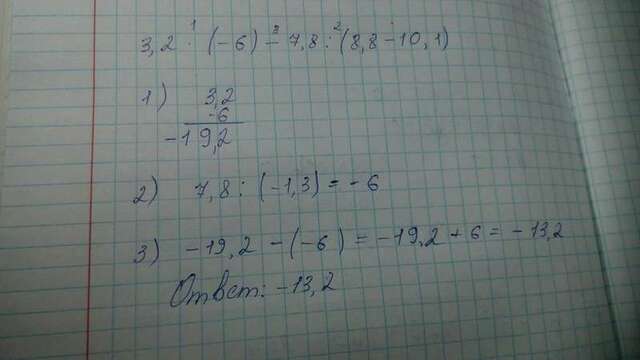 3,2 · (-6) - 7,8 : (8,8 - 10,1)
1) 3,2
-6
-19,2
2) 7,8 : (-1,3) = -6
3) -19,2 - (-6) = -19,2 + 6 = -13,2
Ответ: -13,2